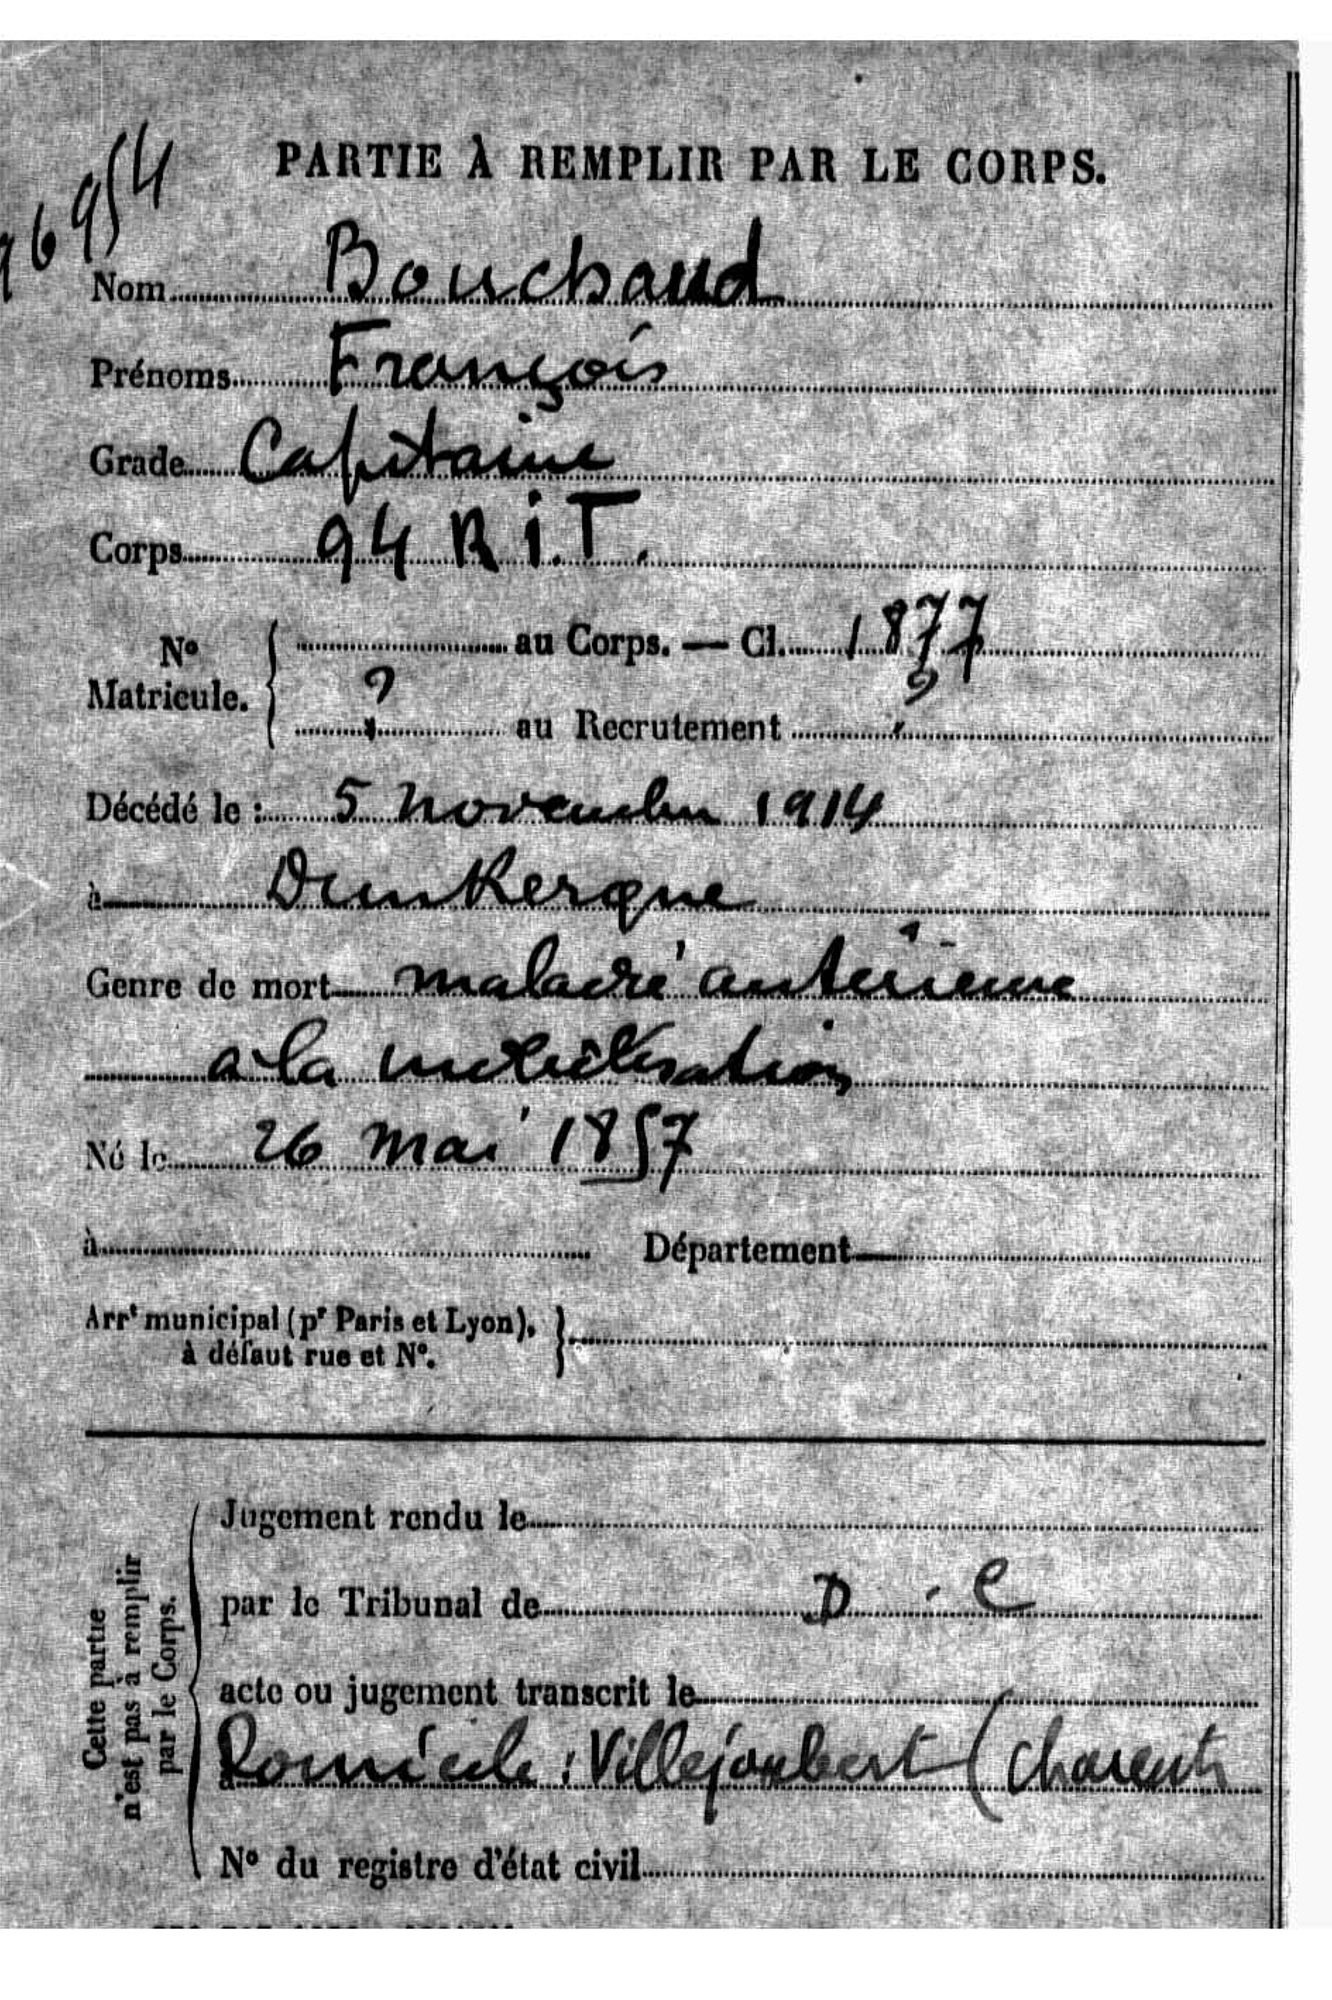 96954
PARTIE À REMPLIR PAR LE CORPS.
Nom Bouchaud
Prénoms François
Grade Capitaine
Corps 94 R.I.T.
N° Matricule. { au Corps. — Cl. 1877
? au Recrutement ?
Décédé le : 5 Novembre 1914
à Dunkerque
Genre de mort maladie antérieure
a la mobilisation
Né le 26 Mai 1857
à Département
Arrt municipal (pr Paris et Lyon), }
à défaut rue et N°.
Cette partie
n'est pas à remplir
par le Corps.
Jugement rendu le
par le Tribunal de D . C
acte ou jugement transcrit le
à Domicile : Villejoubert (Charente
N° du registre d'état civil